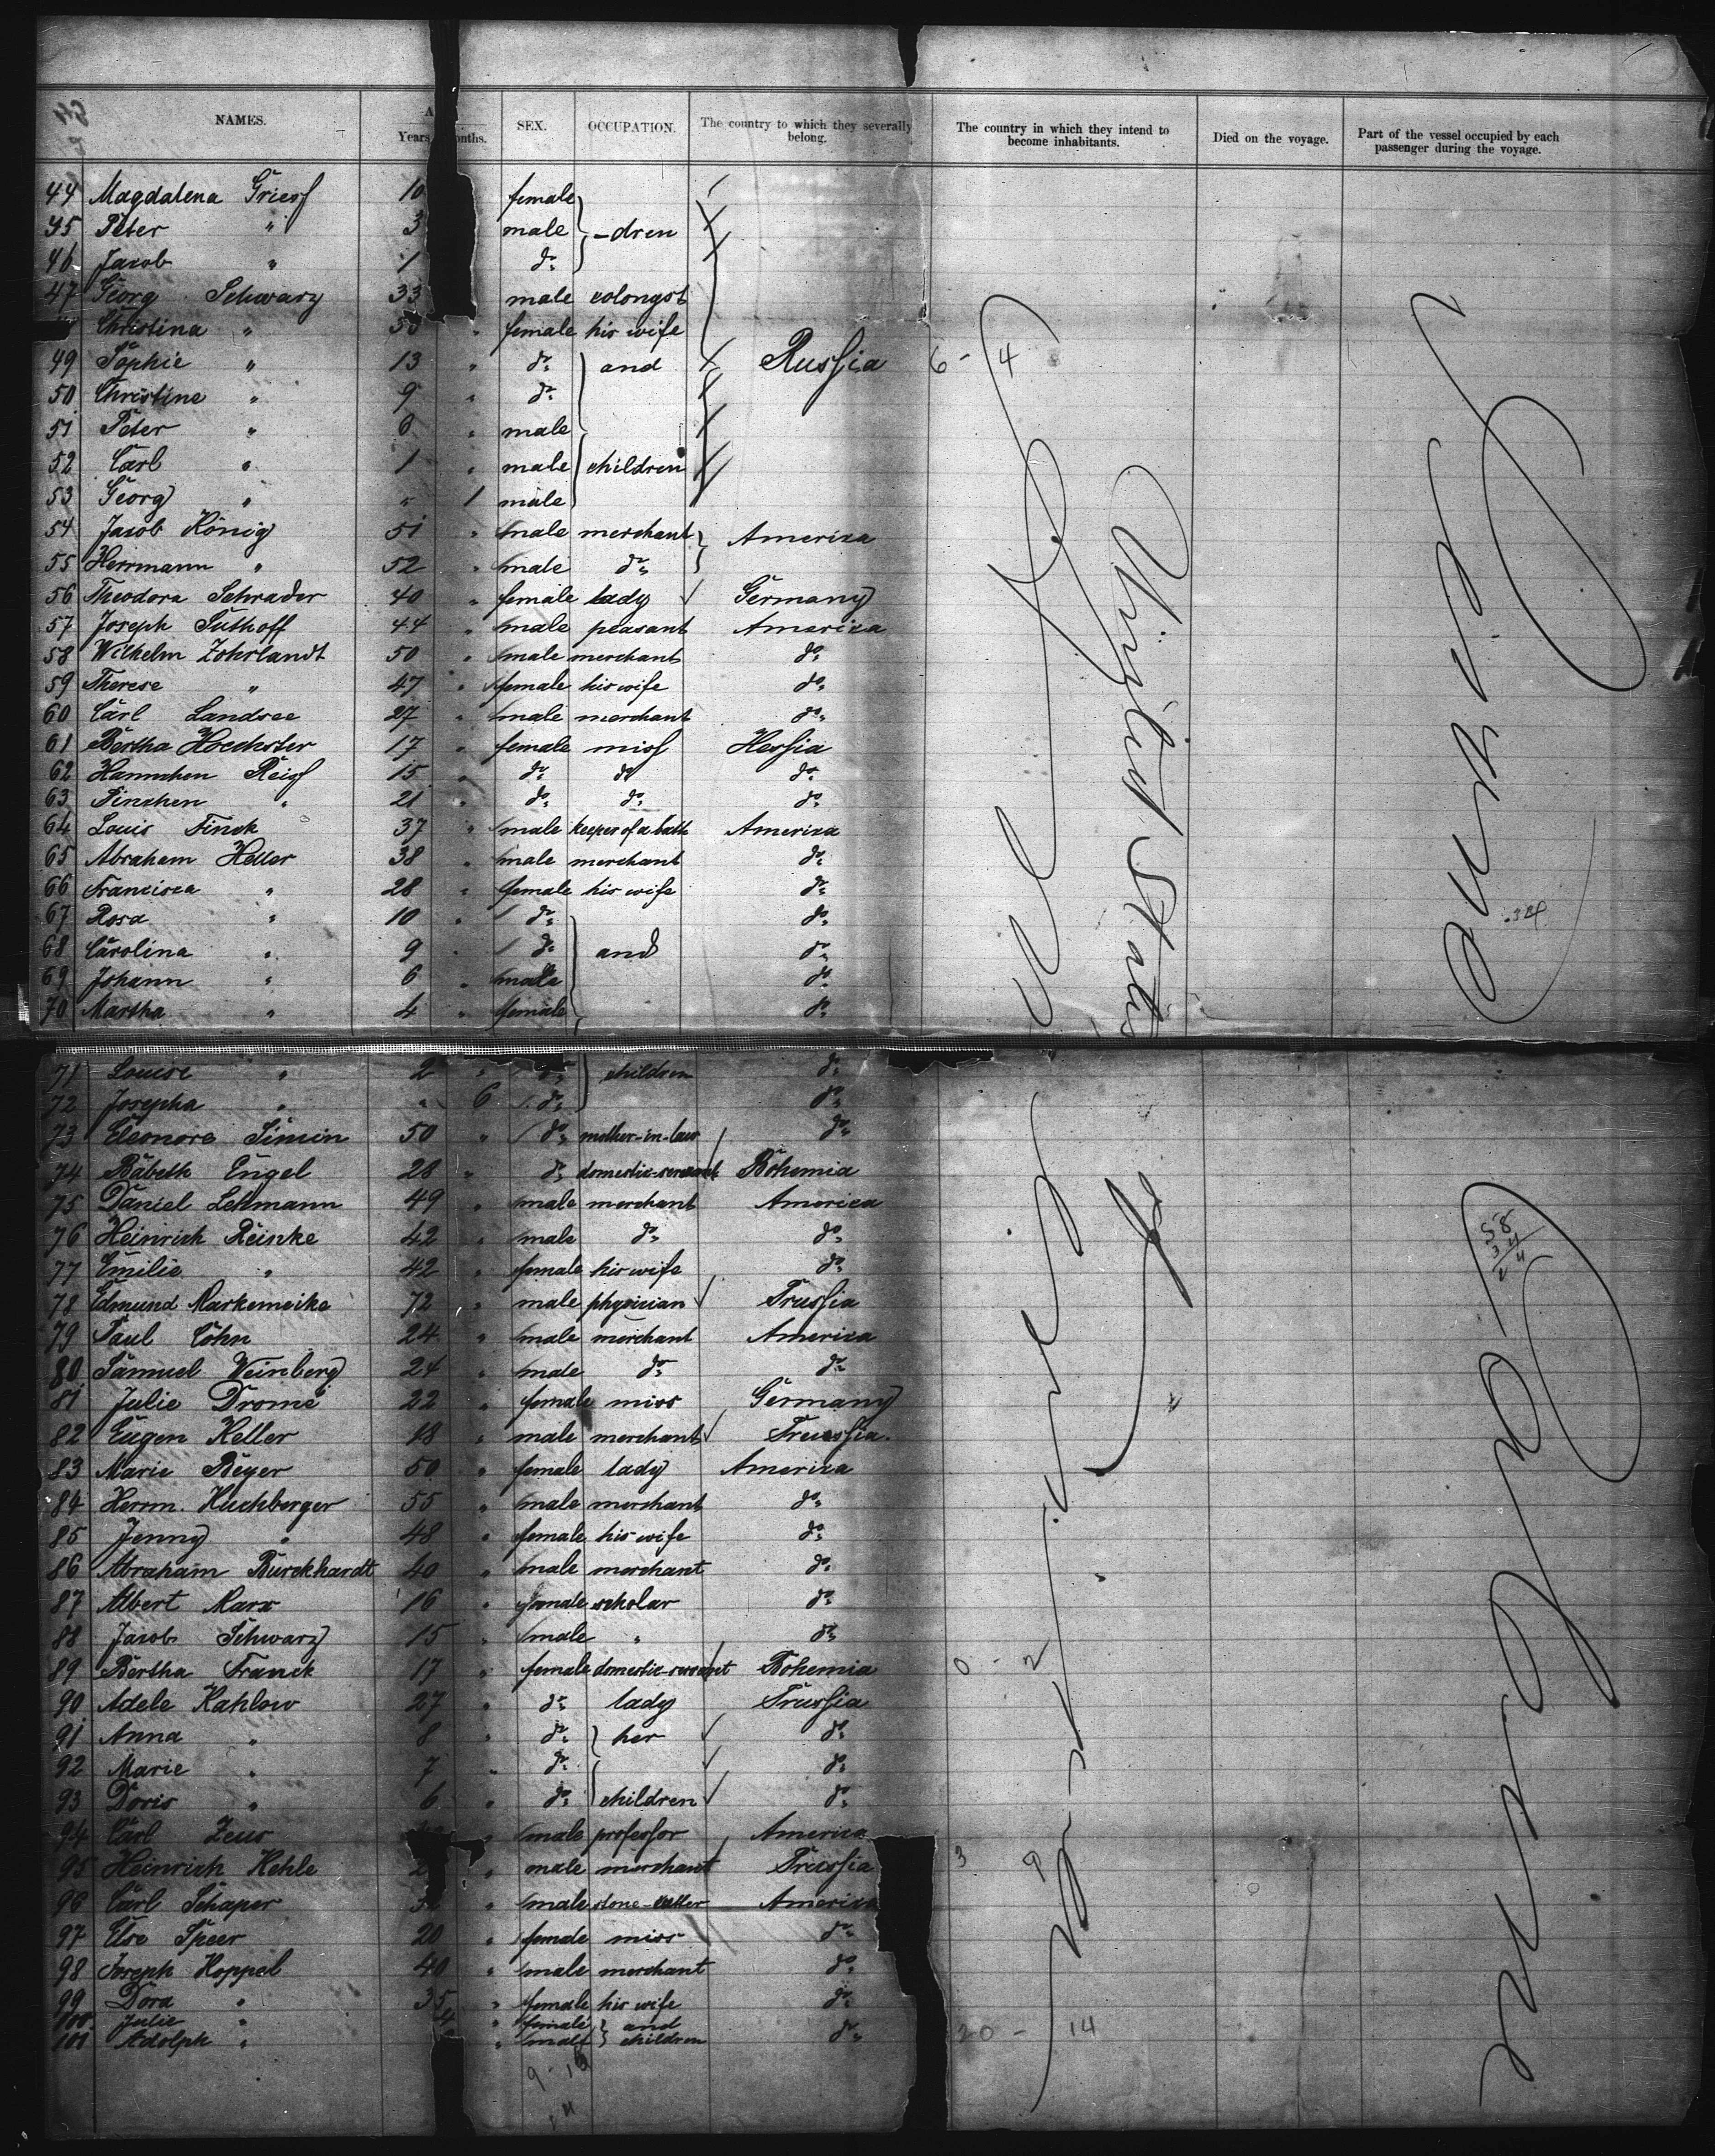 NAMES. Years Months. SEX. OCCUPATION. The country to which they severally belong. The country in which they intend to become inhabitants. Died on the voyage. Part of the vessel occupied by each passenger during the voyage.
44 Magdalena Griess 10 female
45 Peter " 3 male -dren
46 Jacob " 1 do.
47 Georg Schwarz 33 male
Christina " " female his wife
49 Sophie " 13 " do. and Russia 6 - 4
50 Christine " 9 " do.
51 Peter " 6 " male
52 Carl " 1 " male children
53 Georg " " 1 male
54 Jacob König 51 " male merchant America
55 Herrmann " 52 " male do.
56 Theodora Schrader 40 " female lady Germany
57 Joseph Suthoff 44 " male peasant America
58 Wilhelm Zohrlandt 50 " male merchant do.
59 Therese " 47 " female his wife do.
60 Carl Landsee 27 " male merchant do.
61 Bertha Hoechster 17 " female miss Hessia
62 Hannchen Reiss 15 " do. do. do.
63 Sinchen " 21 " do. do. do.
64 Louis Finck 37 " male keeper of a bath America
65 Abraham Heller 38 " male merchant do.
66 Francisca " 28 " female his wife do.
67 Rosa " 10 " do. do.
68 Carolina " 9 " do. and do.
69 Johann " 6 " male do.
70 Martha " 4 " female do.
United States
71 Louise " 2 " do. children do.
72 Josepha " " 6 do. do.
73 Eleonore Simon 50 " do. mother-in-law do.
74 Babeth Engel 28 " do. domestic-servant Bohemia
75 Daniel Lehmann 49 " male merchant America
76 Heinrich Reinke 42 " male do. do.
77 Emilie " 42 " female his wife do.
78 Edmund Markemeike 72 " male physician Prussia
79 Paul Cohn 24 " male merchant America
80 Samuel Weinberg 24 " male do. do.
81 Julie Drome 22 " female miss Germany
82 Eugen Keller 18 " male merchant Prussia
83 Marie Beyer 50 " female lady America
84 Herm. Huchberger 55 " male merchant do.
85 Jenny " 48 " female his wife do.
86 Abraham Burckhardt 40 " male merchant do.
87 Albert Marx 16 " male scholar do.
88 Jacob Schwarz 15 " male " do.
89 Bertha Franck 17 " female domestic-servant Bohemia 0 - 2
90 Adele Kahlow 27 " do. lady Prussia
91 Anna " 8 " do. her do.
92 Marie " 7 " do. do.
93 Doris " 6 " do. children do.
94 Carl Zeus male professor America
95 Heinrich Hehle " male merchant Prussia 3
96 Carl Schaper " male stone-cutter America
97 Else Speer 20 " female miss do.
98 Joseph Hoppel 40 " male merchant do.
99 Dora " 35 " female his wife do.
100 Julie " 4 " female and
101 Adolph " " male children do. 20 - 14